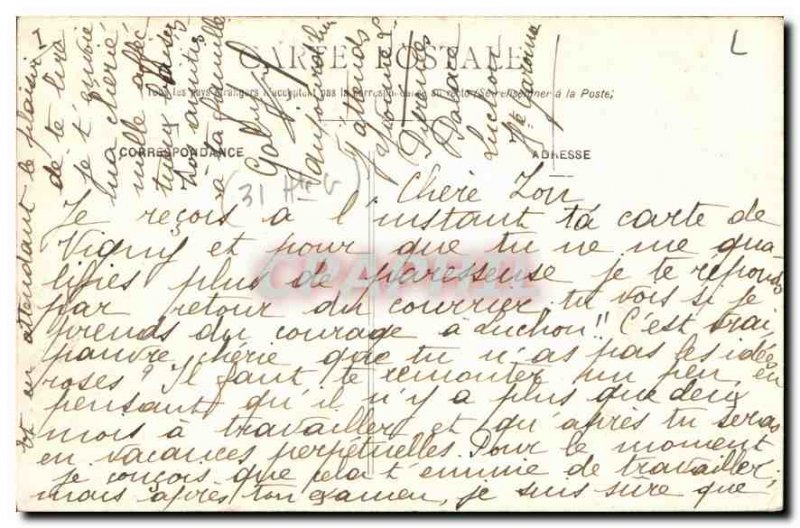 CARTE POSTALE
Tous les pays étrangers n'acceptent pas la Correspondance au recto (Se renseigner à la Poste)
CORRESPONDANCE
ADRESSE
L
(31 Hte G
Chère Zon
Je reçois à l'instant ta carte de
Vigny et pour que tu ne me qua
lifies plus de paresseuse je te réponds
par retour du courrier, tu vois si je
prends du courage à Luchon!! C'est vrai
pauvre chérie que tu n'as pas les idées
roses? Il faut te remonter un peu, en
pensant qu'il n'y a plus que deux
mois à travailler et qu'après tu seras
en vacances perpétuelles. Pour le moment
je conçois que cela t'ennuie de travailler,
mais après ton examen, je suis sûre que
et en attendant le plaisir
de te lire
je t'envoie
ma chérie
mille affec
tueux baisers
à ta famille
Gaby
J'attends
Pyrénées
Luchon
Hte Garonne